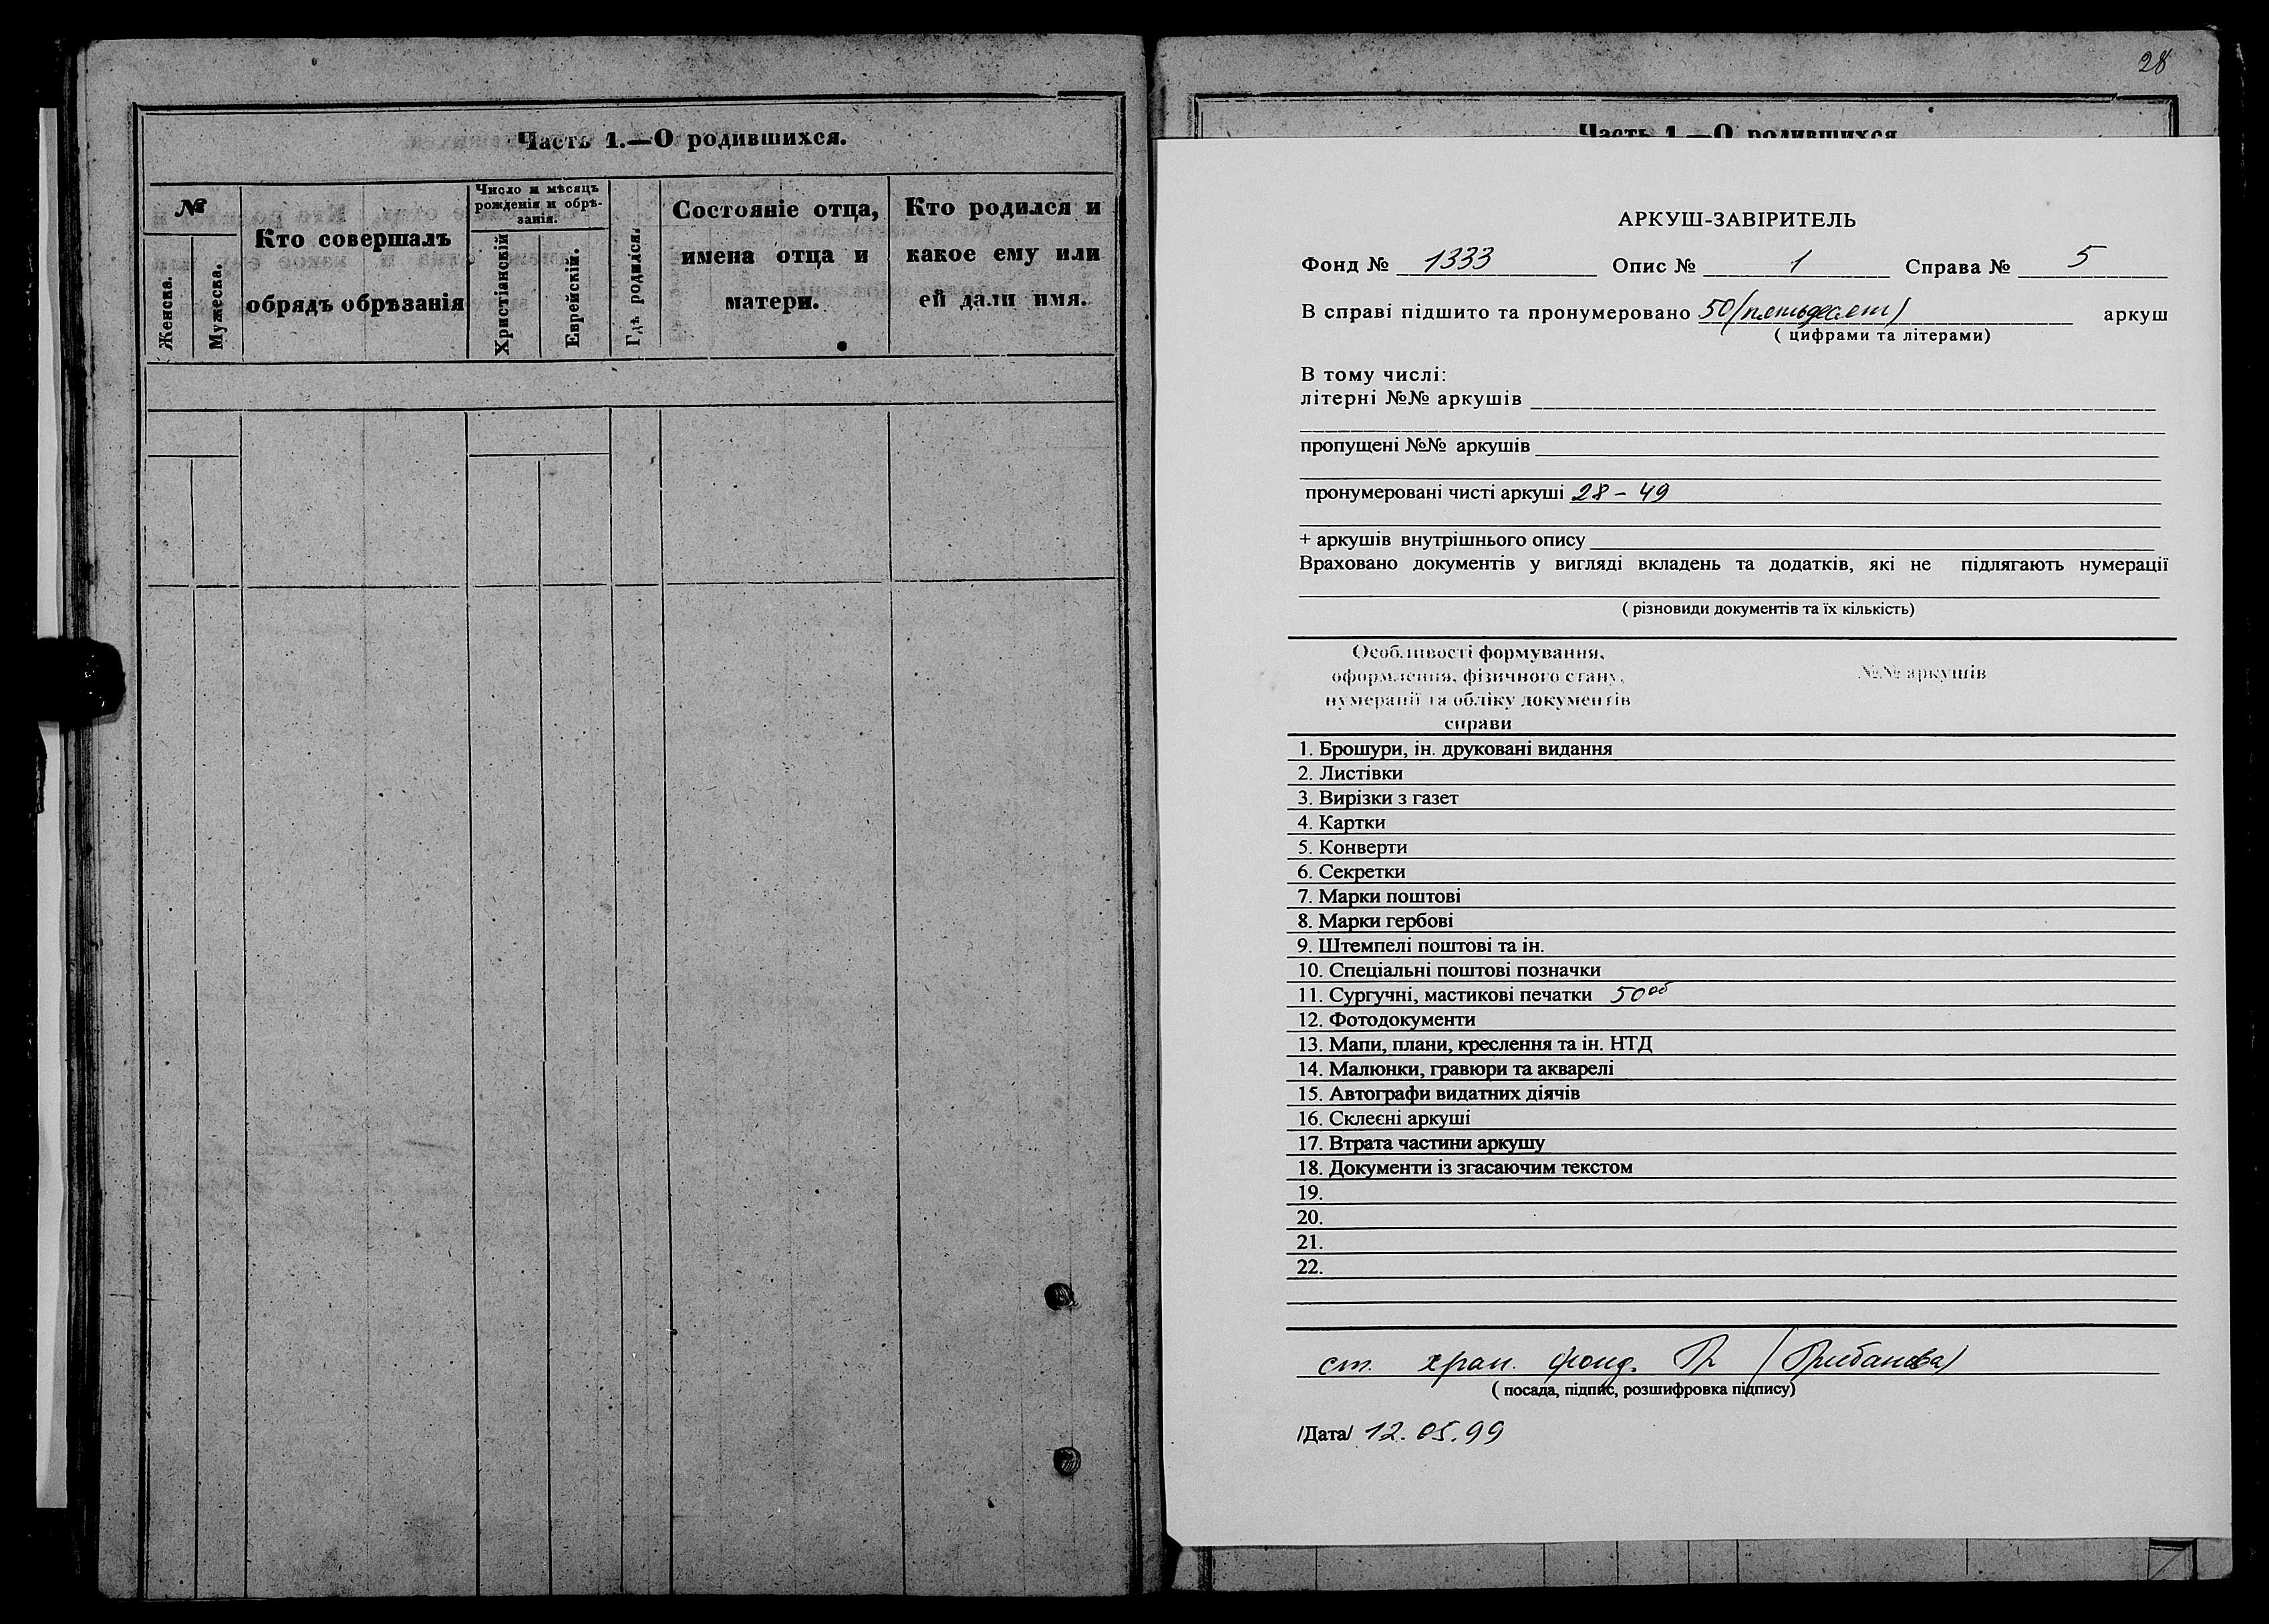 Часть 1.—О родившихся.
№
Женска.
Мужеска.
Кто совершалъ
обрядъ обрѣзанія
Число и мѣсяцъ
рожденія и обрѣ-
занія.
Христіанскій
Еврейскій.
Гдѣ родился.
Состояніе отца,
имена отца и
матери.
Кто родился и
какое ему или
ей дали имя.
28
Часть 1.—О родившихся
АРКУШ-ЗАВІРИТЕЛЬ
Фонд № 1333 Опис № 1 Справа № 5
В справі підшито та пронумеровано 50 (пятьдесят) аркуш
( цифрами та літерами)
В тому числі:
літерні №№ аркушів
пропущені №№ аркушів
пронумеровані чисті аркуші 28 – 49
+ аркушів внутрішнього опису
Враховано документів у вигляді вкладень та додатків, які не підлягають нумерації
( різновиди документів та їх кількість)
Особливості формування,
оформлення, фізичного стану,
нумерації та обліку документів
справи
№№ аркушів
1. Брошури, ін. друковані видання
2. Листівки
3. Вирізки з газет
4. Картки
5. Конверти
6. Секретки
7. Марки поштові
8. Марки гербові
9. Штемпелі поштові та ін.
10. Спеціальні поштові позначки
11. Сургучні, мастикові печатки 50об
12. Фотодокументи
13. Мапи, плани, креслення та ін. НТД
14. Малюнки, гравюри та акварелі
15. Автографи видатних діячів
16. Склеєні аркуші
17. Втрата частини аркушу
18. Документи із згасаючим текстом
19.
20.
21.
22.
ст. хран. фонд.
( посада, підпис, розшифровка підпису)
/Дата/ 12.05.99